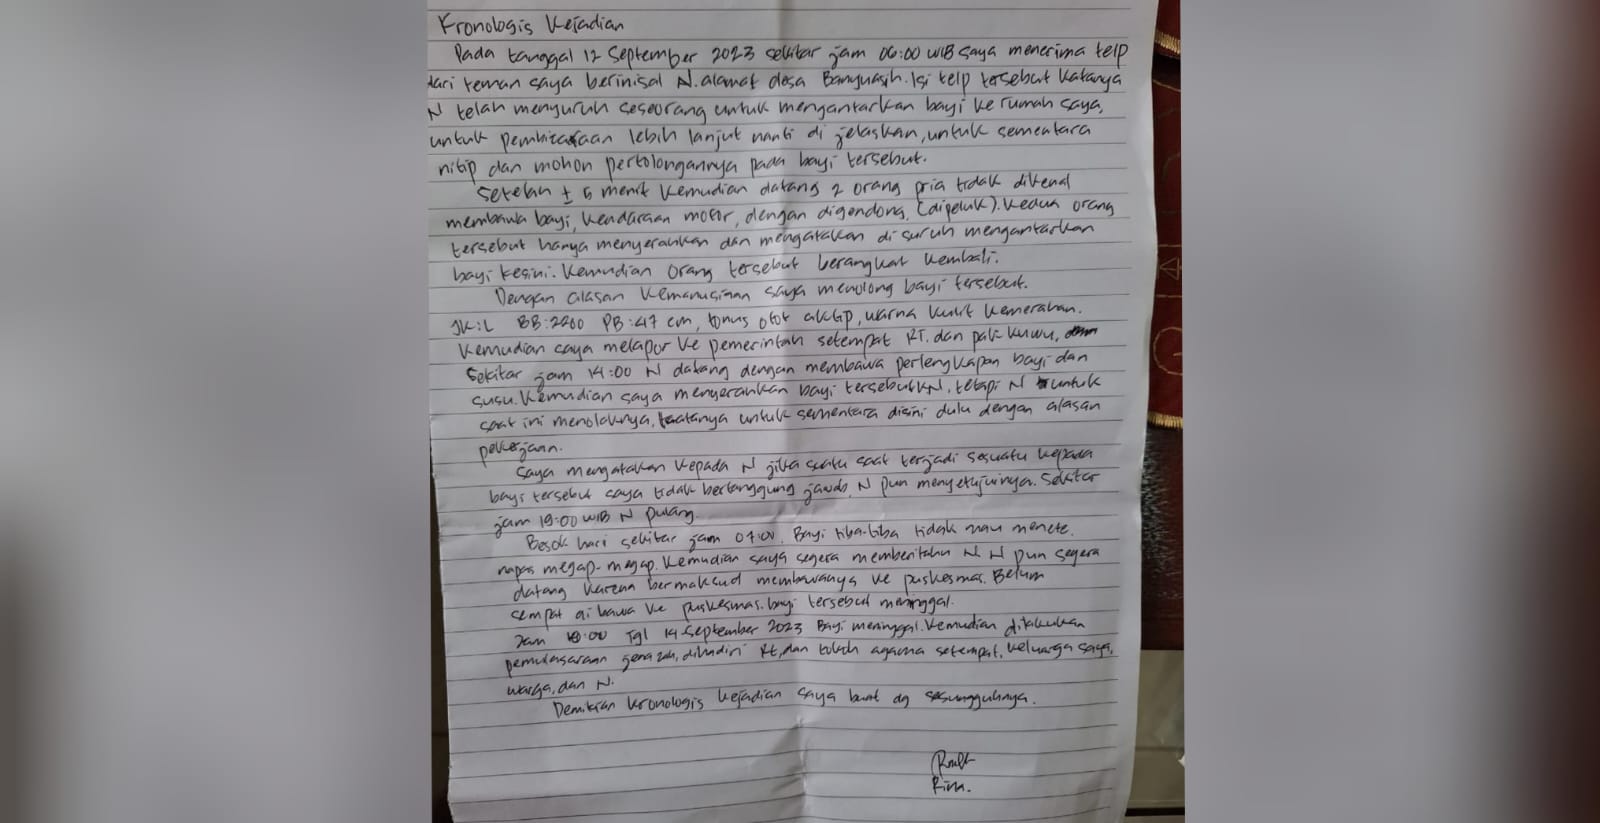 Kronologis Kejadian
Pada tanggal 12 September 2023 sekitar jam 06:00 WIB saya menerima telp
dari teman saya berinisal N. alamat desa Banyuasih. Isi telp tersebut katanya
N telah menyuruh seseorang untuk mengantarkan bayi ke rumah saya,
untuk pembicaraan lebih lanjut nanti di jelaskan, untuk sementara
nitip dan mohon pertolongannya pada bayi tersebut.
Setelah ± 5 menit kemudian datang 2 orang pria tidak dikenal
membawa bayi, kendaraan motor, dengan digendong, (dipeluk). Kedua orang
tersebut hanya menyerahkan dan mengatakan di suruh mengantarkan
bayi kesini. Kemudian orang tersebut berangkat kembali.
Dengan alasan kemanusiaan saya menolong bayi tersebut.
JK: L BB: 2200 PB: 47 cm, tonus otot aktip, warna kulit kemerahan.
Kemudian saya melapor ke pemerintah setempat RT. dan pak kuwu,
Sekitar jam 14:00 N datang dengan membawa perlengkapan bayi dan
susu. Kemudian saya menyerahkan bayi tersebut N, tetapi N untuk
saat ini menolaknya, katanya untuk sementara disini dulu dengan alasan
pekerjaan.
Saya mengatakan kepada N jika suatu saat terjadi sesuatu kepada
bayi tersebut saya tidak bertanggung jawab, N pun menyetujuinya. Sekitar
jam 19:00 WIB N pulang.
Besok hari sekitar jam Bayi tiba-tiba tidak mau menete.
napas megap-megap. Kemudian saya segera memberitahu N N pun segera
datang karena bermaksud membawanya ke puskesmas. Belum
sempat di bawa ke puskesmas. bayi tersebut meninggal.
Jam Tgl 14 September 2023 Bayi meninggal. Kemudian dilakukan
pemulasaraan jenazah, dihadiri RT, dan tokoh agama setempat, keluarga saya,
warga, dan N.
Demikian kronologis kejadian saya buat dg sesungguhnya.
Rina.